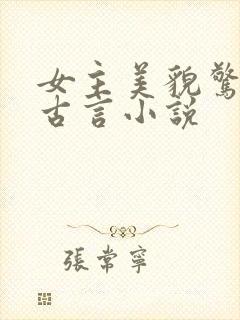 女主美貌驚
古言小說
張常寧